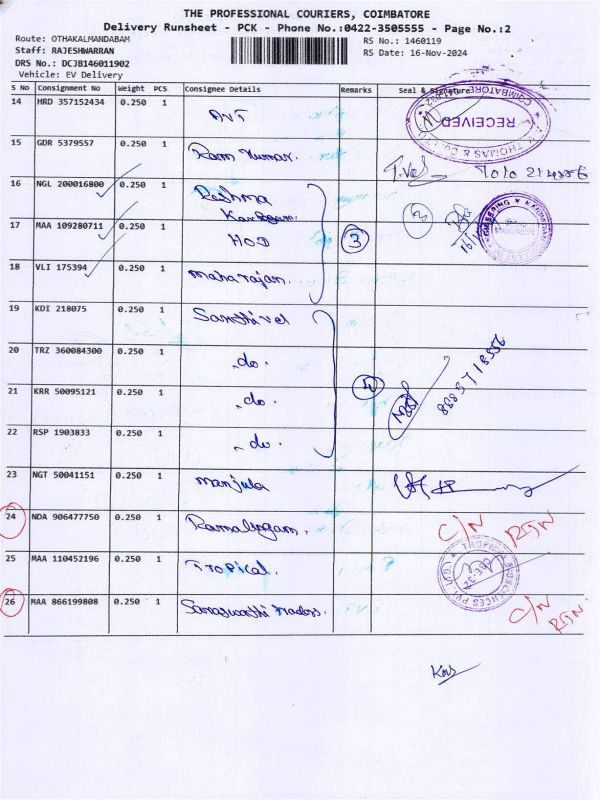 THE PROFESSIONAL COURIERS, COIMBATORE
Delivery Runsheet - PCK - Phone No.:0422-3505555 - Page No.:2
Route: OTHAKALMANDABAM
Staff: RAJESHWARRAN
DRS No.: DCJB146011902
Vehicle: EV Delivery
RS No.: 1460119
RS Date: 16-Nov-2024
S No Consignment No Weight PCS Consignee Details Remarks Seal & Signature
14 HRD 357152434 0.250 1 AVT
RECEIVED
THOMAS & CO
COIMBATORE
15 GDR 5379557 0.250 1 Ram Kumar.
16 NGL 200016800 0.250 1 Reshma
Karpagam.
17 MAA 109280711 0.250 1 HOD
3
18 VLI 175394 0.250 1 maharajan.
19 KDI 218075 0.250 1 Sakthivel
20 TRZ 360084300 0.250 1 -do-
21 KRR 50095121 0.250 1 -do-
4
22 RSP 1903833 0.250 1 -do-
23 NGT 50041151 0.250 1 manjula
24 NDA 906477750 0.250 1 Ramalingam. C/N RTN
25 MAA 110452196 0.250 1 Tropical.
26 MAA 866199808 0.250 1 Saraswathi traders. C/N RTN